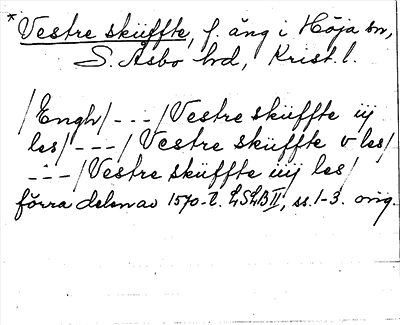 * Vestre sküffte, f. äng i Höja sn,
S. Åsbo hd, Krist. l.
/Engh/ - - - /Vestre sküffte iij
les/ - - - /Vestre sküffte v les/
- - - /Vestre sküffte iiij les/
förra delen av 1570-t. LSLB II, ss. 1-3. orig.